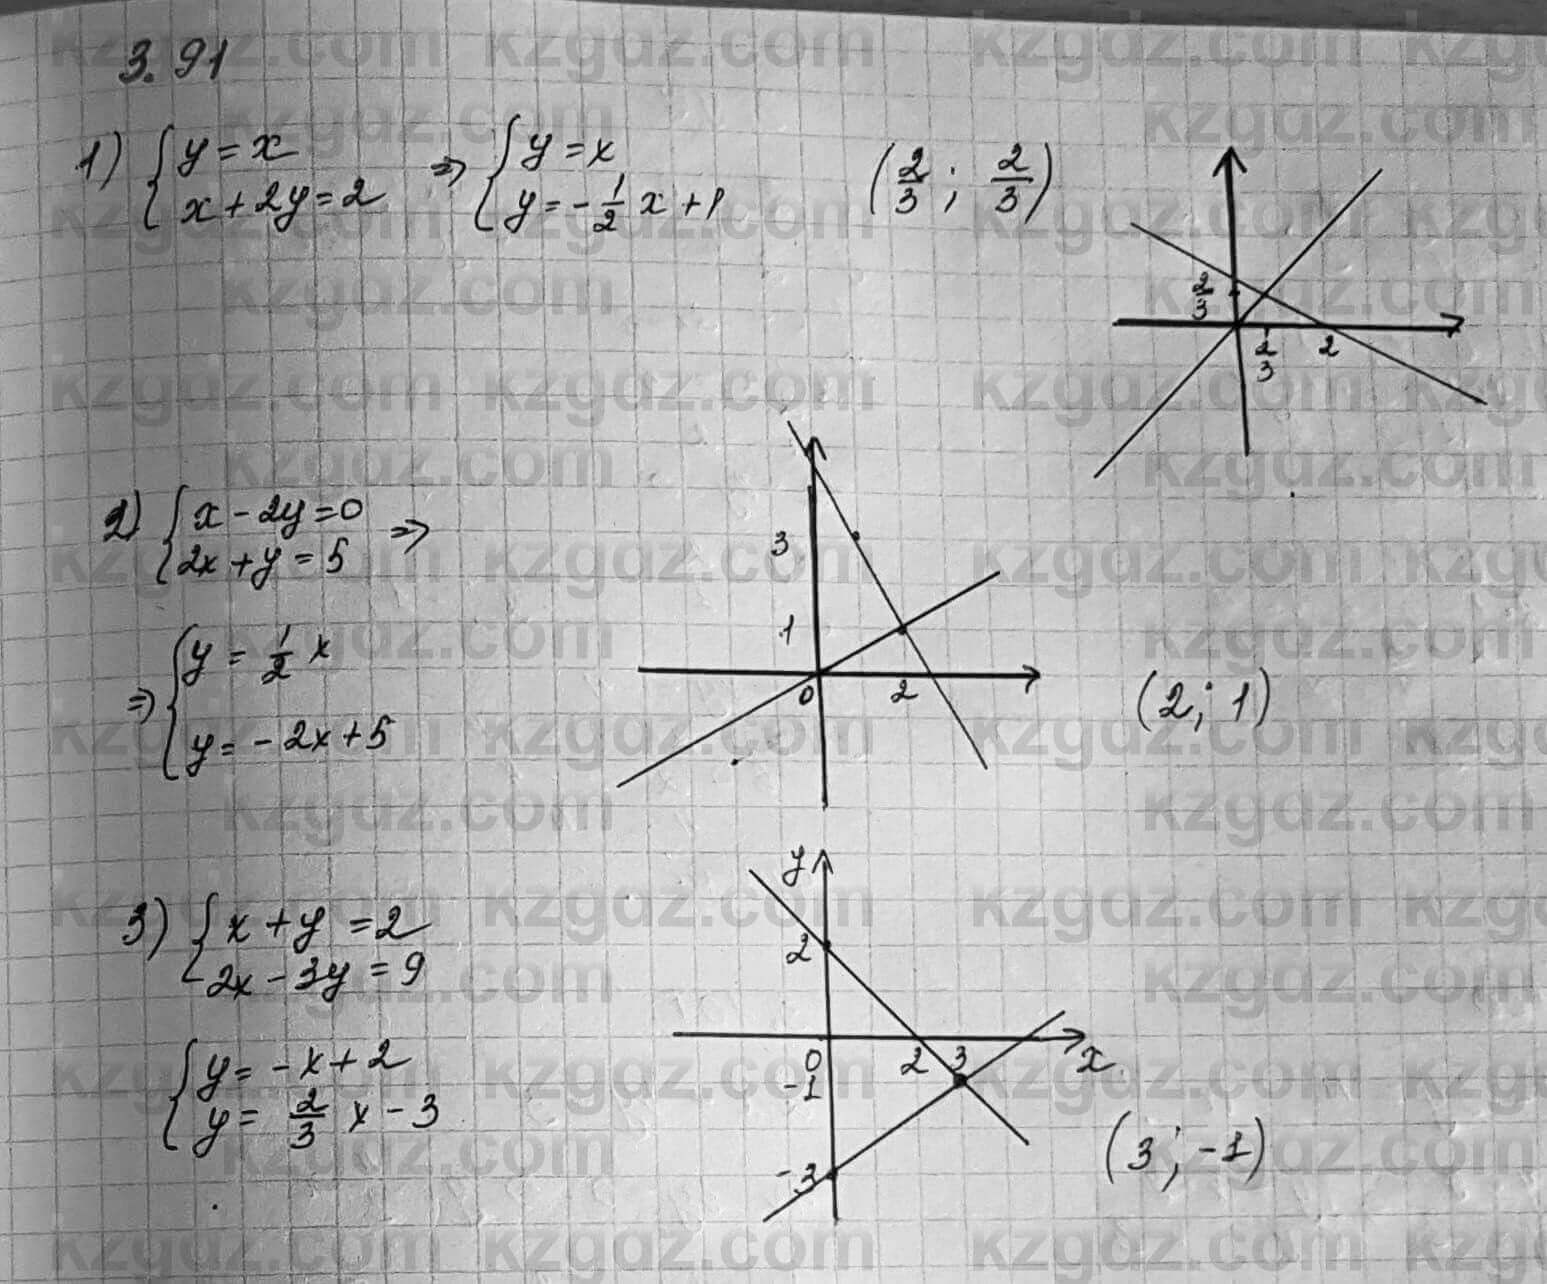 3.91
1) { y = x
x + 2y = 2 ⇒ { y = x
y = -1/2 x + 1 (2/3; 2/3)
2/3
2/3 2
2) { x - 2y = 0
2x + y = 5 ⇒
⇒ { y = 1/2 x
y = -2x + 5
3
1
0 2
(2; 1)
3) { x + y = 2
2x - 3y = 9
{ y = -x + 2
y = 2/3 x - 3
y
2
0 2 3 x
-1
-3
(3; -1)
kzgdz.com